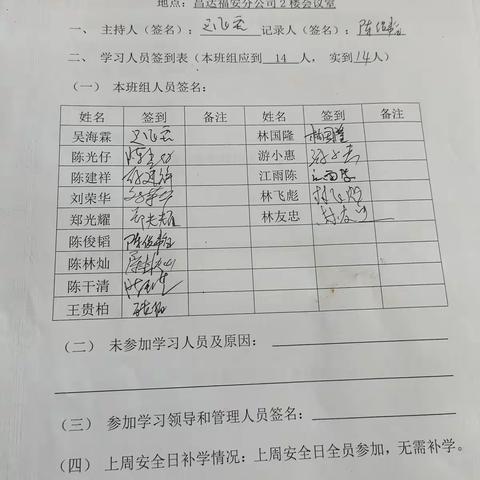 地点：昌达福安分公司2楼会议室
一、 主持人（签名）： 记录人（签名）：陈俊韬
二、 学习人员签到表（本班组应到 14 人， 实到14人）
（一） 本班组人员签名：
姓名 签到 备注 姓名 签到 备注
吴海霖 林国隆 林国隆
陈光仔 游小惠 游小惠
陈建祥 江雨陈
刘荣华 林飞彪
郑光耀 林友忠
陈俊韬 陈俊韬
陈林灿
陈干清
王贵柏
（二） 未参加学习人员及原因：
（三） 参加学习领导和管理人员签名：
（四） 上周安全日补学情况：上周安全日全员参加，无需补学。